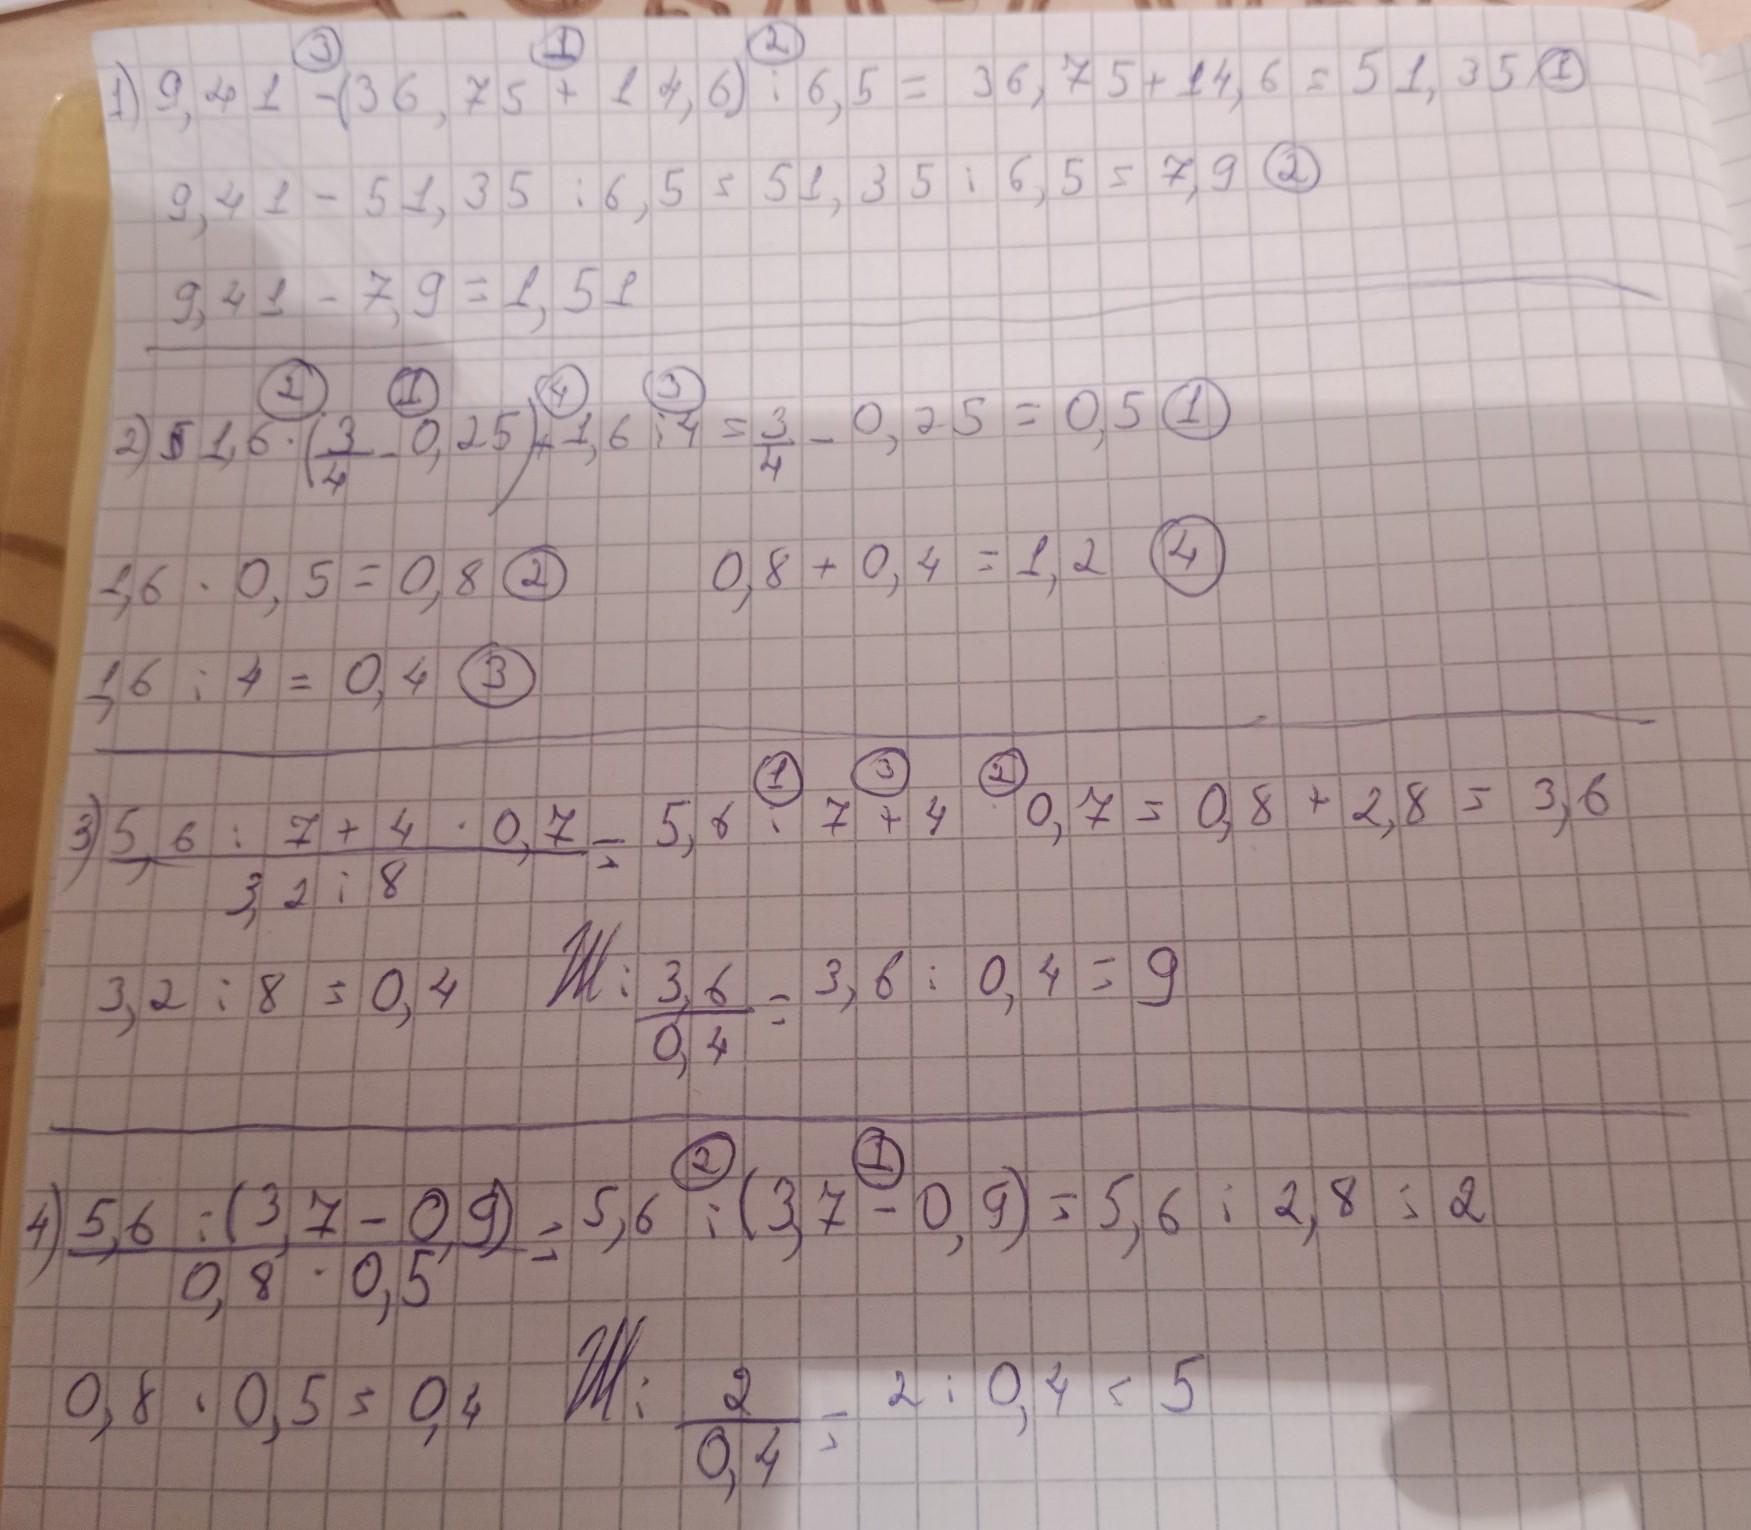 ③ ① ②
1) 9,41 - (36,75 + 14,6) : 6,5 = 36,75 + 14,6 = 51,35 ①
9,41 - 51,35 : 6,5 = 51,35 : 6,5 = 7,9 ②
9,41 - 7,9 = 1,51
② ① ④ ③
2) 1,6 · (3/4 - 0,25) + 1,6 : 4 = 3/4 - 0,25 = 0,5 ①
1,6 · 0,5 = 0,8 ② 0,8 + 0,4 = 1,2 ④
1,6 : 4 = 0,4 ③
① ③ ②
3) 5,6 : 7 + 4 · 0,7 = 5,6 : 7 + 4 · 0,7 = 0,8 + 2,8 = 3,6
3,2 : 8
3,2 : 8 = 0,4 : 3,6/0,4 = 3,6 : 0,4 = 9
② ①
4) 5,6 : (3,7 - 0,9) = 5,6 : (3,7 - 0,9) = 5,6 : 2,8 = 2
0,8 · 0,5
0,8 · 0,5 = 0,4 : 2/0,4 = 2 : 0,4 = 5